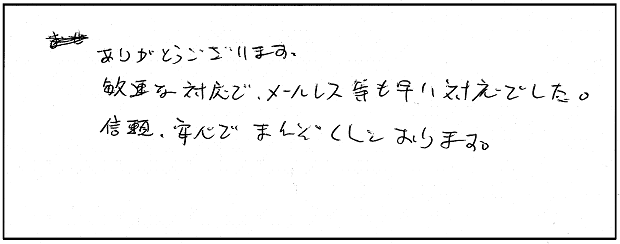 ありがとうございます。
敏速な対応で、メールレス等も早い対応でした。
信頼、安心でまんぞくしております。